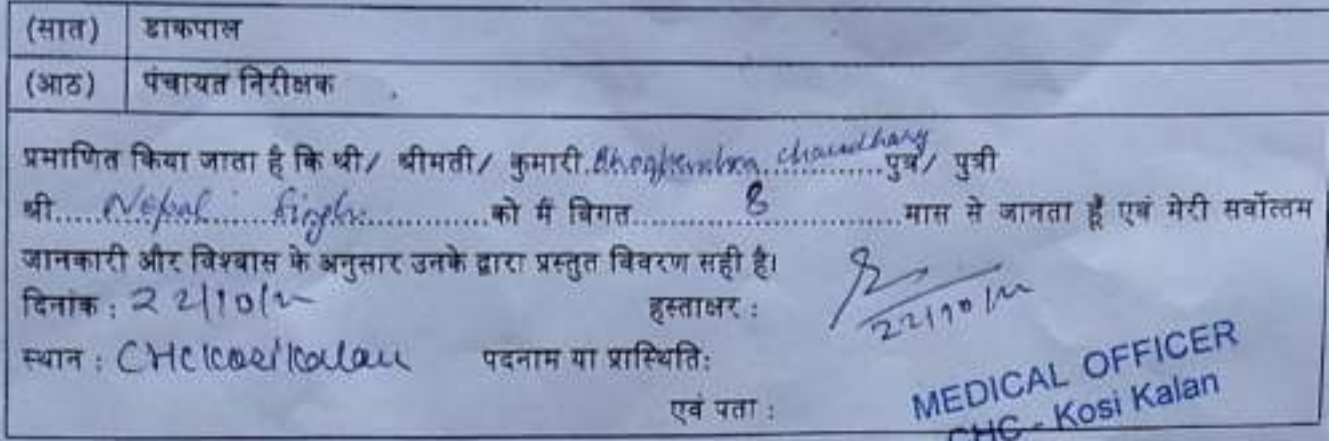 (सात) डाकपाल
(आठ) पंचायत निरीक्षक
प्रमाणित किया जाता है कि श्री/ श्रीमती/ कुमारी. chaudhary पुत्र/ पुत्री
श्री..... Nepal ..... Singh .............को मैं विगत............ 8 ............मास से जानता हूँ एवं मेरी सर्वोत्तम
जानकारी और विश्वास के अनुसार उनके द्वारा प्रस्तुत विवरण सही है।
दिनांक : 22/10/ हस्ताक्षर :
22/10/
स्थान : CHC पदनाम या प्रास्थिति:
एवं पता :
MEDICAL OFFICER
CHC - Kosi Kalan